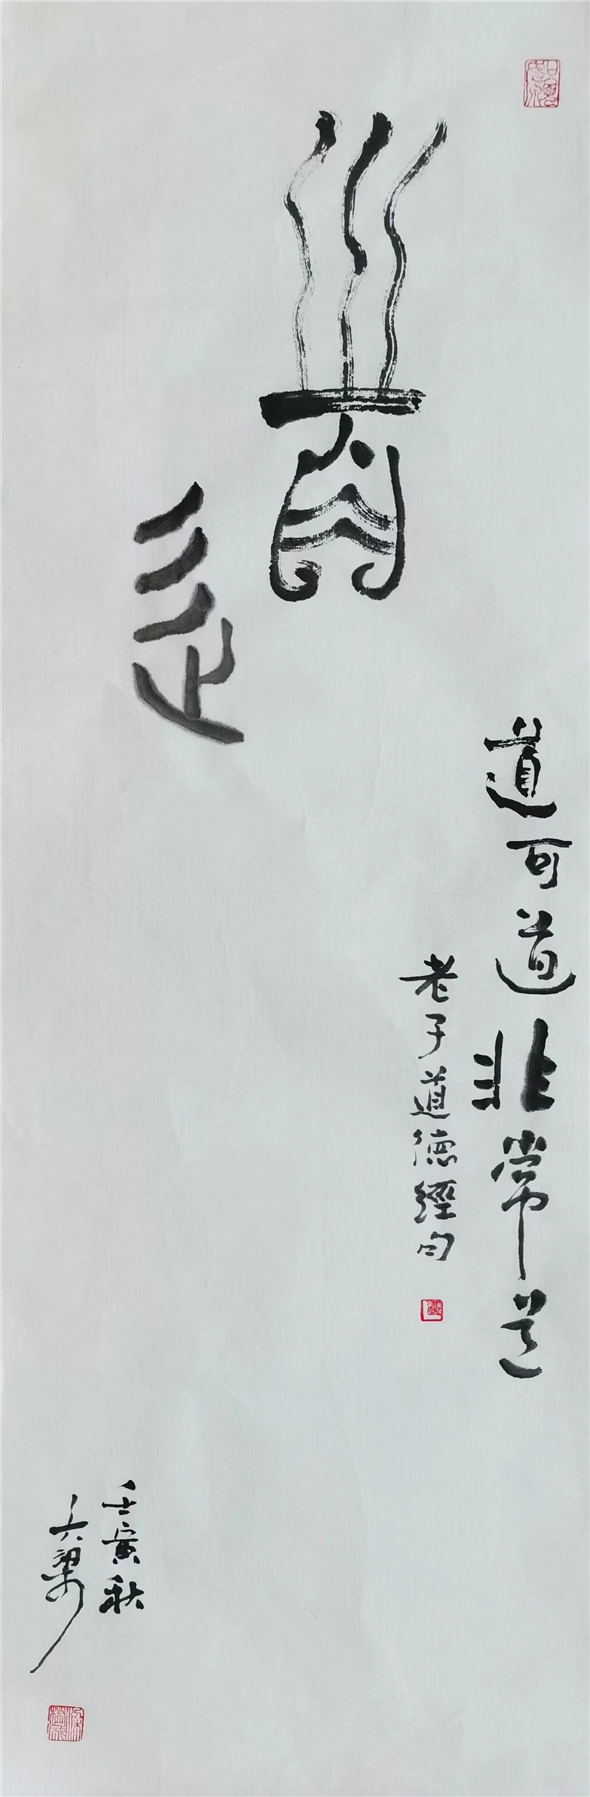 道
道可道非常道
老子道德經句
壬寅秋